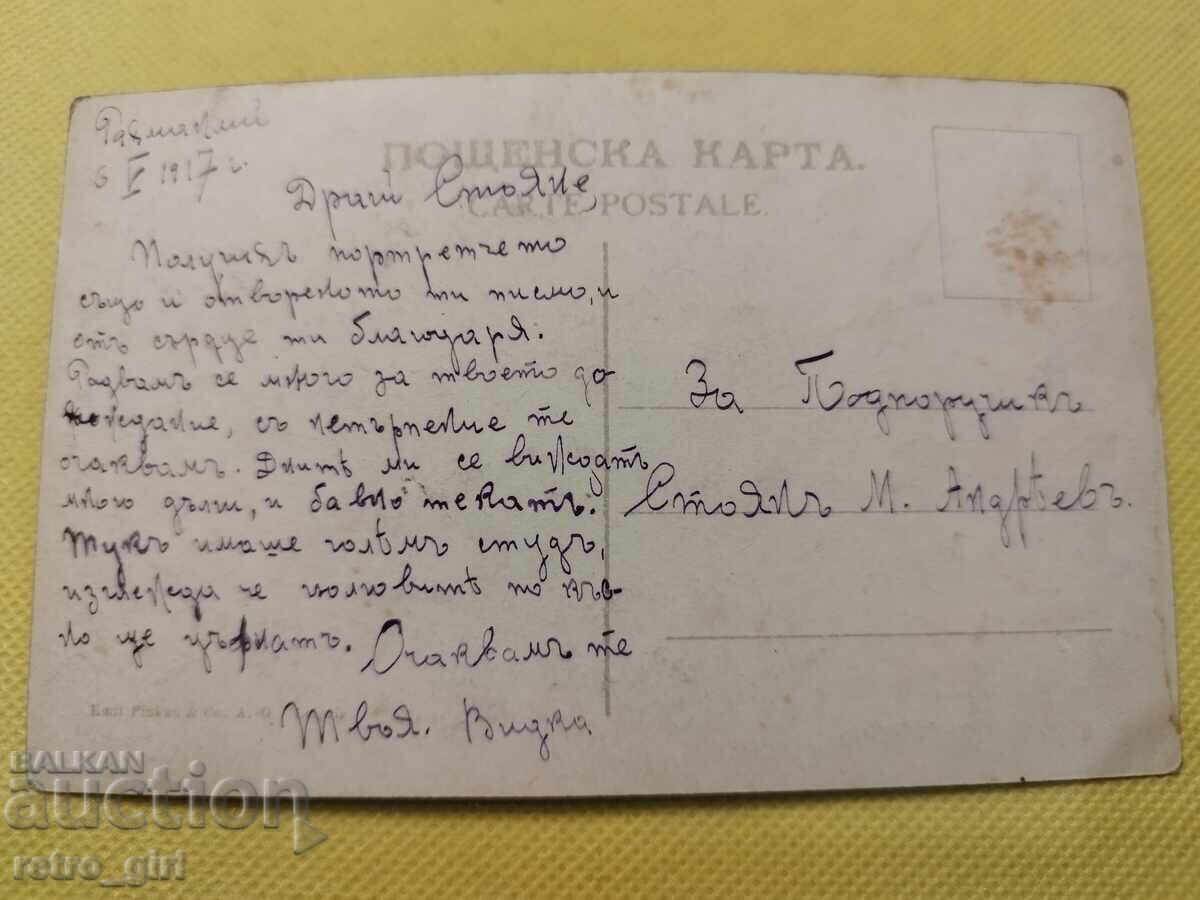 6 V 1917 г.
ПОЩЕНСКА КАРТА.
CARTE POSTALE.
Драги Стояне,
Получихъ портретчето
също и отвореното ти писмо, и
отъ сърдце ти благодаря.
Радвамъ се много за твоето до-
хождание, съ нетърпение те
очаквамъ. Днитѣ ми се виждатъ
много дълги, и бавно текатъ.
Тукъ имаше голѣмъ студъ,
изглежда че по къс-
но ще цъвнатъ. Очаквамъ те
Твоя. Видка
За Подпоручикъ
Стоянъ М. Андрѣевъ.
BALKAN
auction
retro_girl